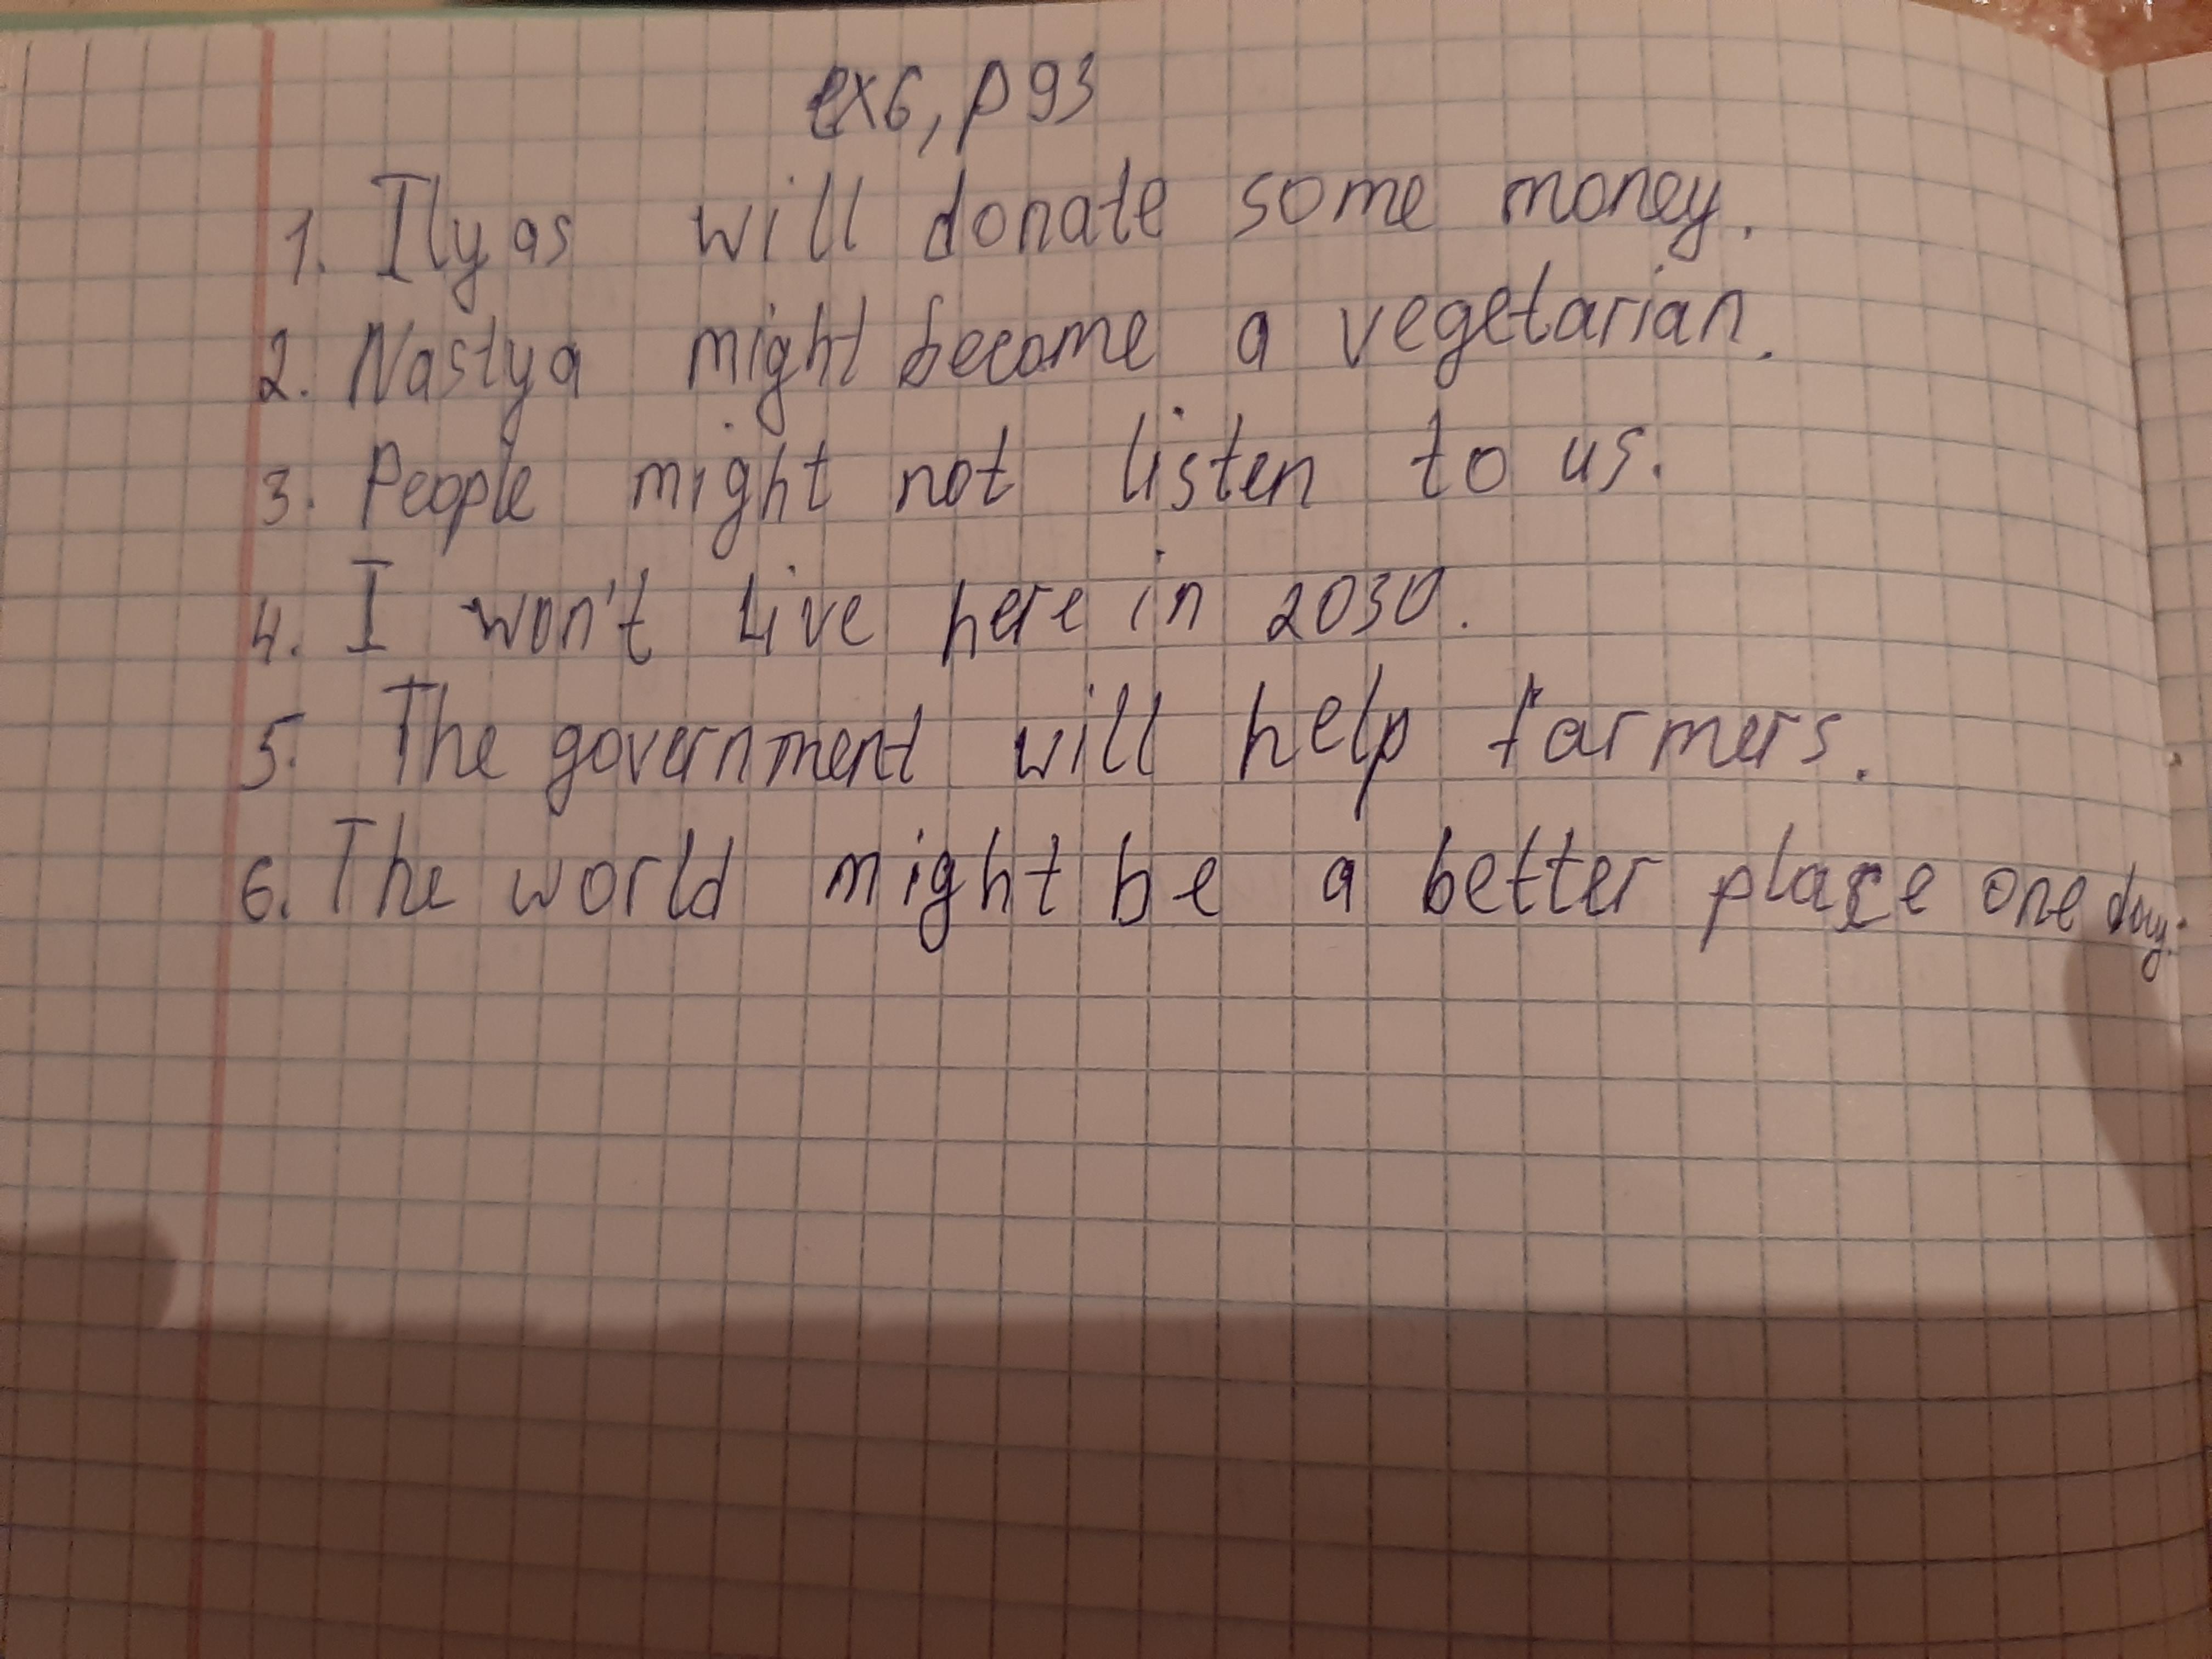 ex6, p93
1. Ilyas will donate some money.
2. Nastya might become a vegetarian.
3. People might not listen to us.
4. I won't live here in 2030.
5. The government will help farmers.
6. The world might be a better place one day.